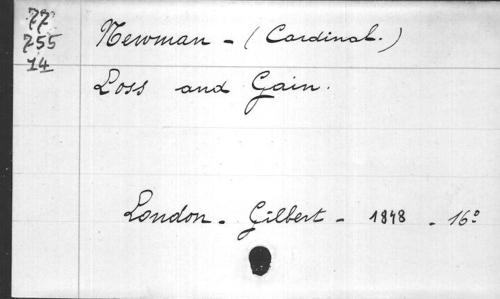 77
255
14
Newman - (Cardinal.)
Loss and Gain.
London - Gilbert - 1848 - 16º